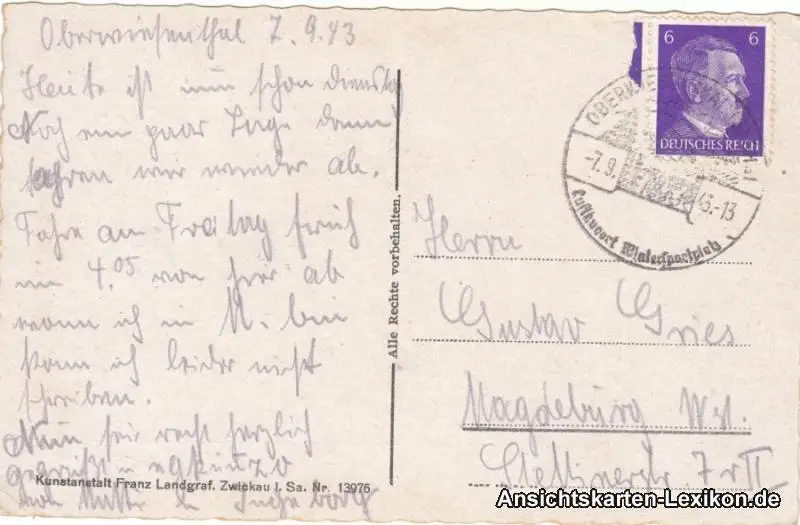 Oberwiesenthal 7.9.43
Heute ist nun schon Dienstag
Noch ein paar Tage dann
fahren wir wieder ab.
Fahre am Freitag früh
um 4.05 von hier ab
wann ich in M. bin
kann ich leider nicht
schreiben.
Nun sei recht herzlich
gegrüßt u.
von Mutti u. Ingeborg
Kunstanstalt Franz Landgraf. Zwickau i. Sa. Nr. 13976
Alle Rechte vorbehalten.
6 6
DEUTSCHES REICH
-7.9.43.-13
Luftkurort Wintersportplatz
Herrn
Gustav Gries
Magdeburg
Stettinerstr. 7 II
Ansichtskarten-Lexikon.de